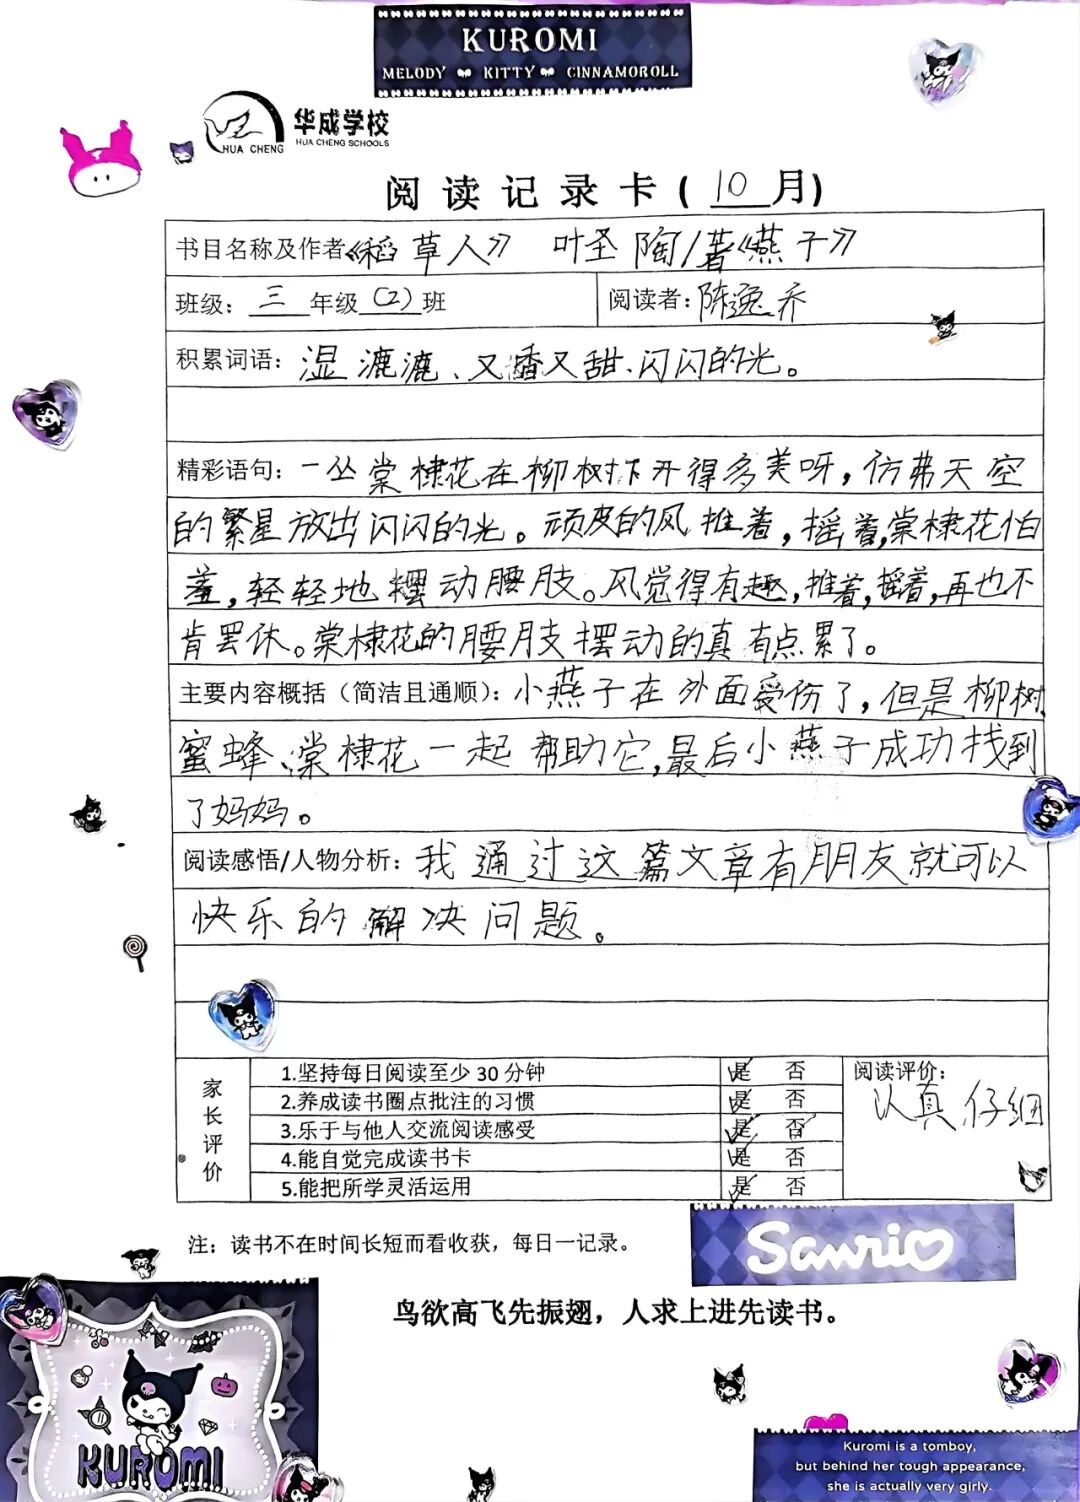 KUROMI
MELODY KITTY CINNAMOROLL
华成学校
HUA CHENG
HUA CHENG SCHOOLS
阅读记录卡(10月)
书目名称及作者《稻草人》 叶圣陶/著《燕子》
班级：三年级(2)班 阅读者：陈逸乔
积累词语：湿漉漉、又香又甜、闪闪的光。
精彩语句：一丛棠棣花在柳树下开得多美呀，仿弗天空
的繁星放出闪闪的光。顽皮的风推着，摇着，棠棣花怕
羞，轻轻地摆动腰肢。风觉得有趣，推着，摇着，再也不
肯罢休。棠棣花的腰肢摆动的真有点累了。
主要内容概括（简洁且通顺）：小燕子在外面受伤了，但是柳树、
蜜蜂、棠棣花一起帮助它，最后小燕子成功找到
了妈妈。
阅读感悟/人物分析：我通过这篇文章有朋友就可以
快乐的解决问题。
家长评价
1.坚持每日阅读至少30分钟 是 否
2.养成读书圈点批注的习惯 是 否
3.乐于与他人交流阅读感受 是 否
4.能自觉完成读书卡 是 否
5.能把所学灵活运用 是 否
阅读评价：
认真仔细
注：读书不在时间长短而看收获，每日一记录。
Sanrio
鸟欲高飞先振翅，人求上进先读书。
KUROMI
Kuromi is a tomboy,
but behind her tough appearance,
she is actually very girly.